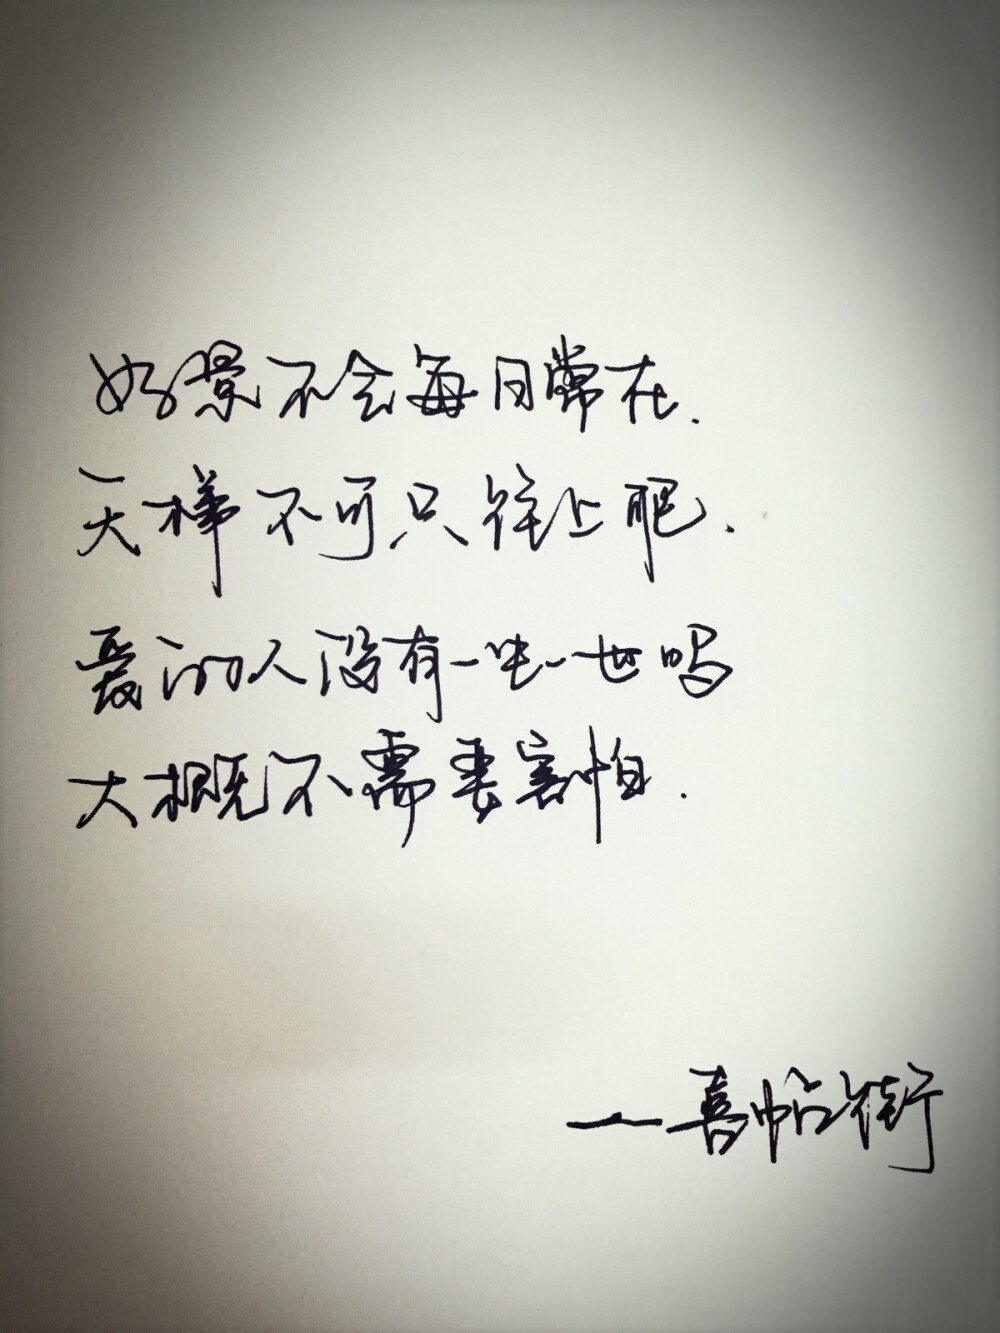 好景不会每日常在.
天梯不可只往上爬.
爱的人没有一生一世吗
大概不需要害怕.
——喜帖街